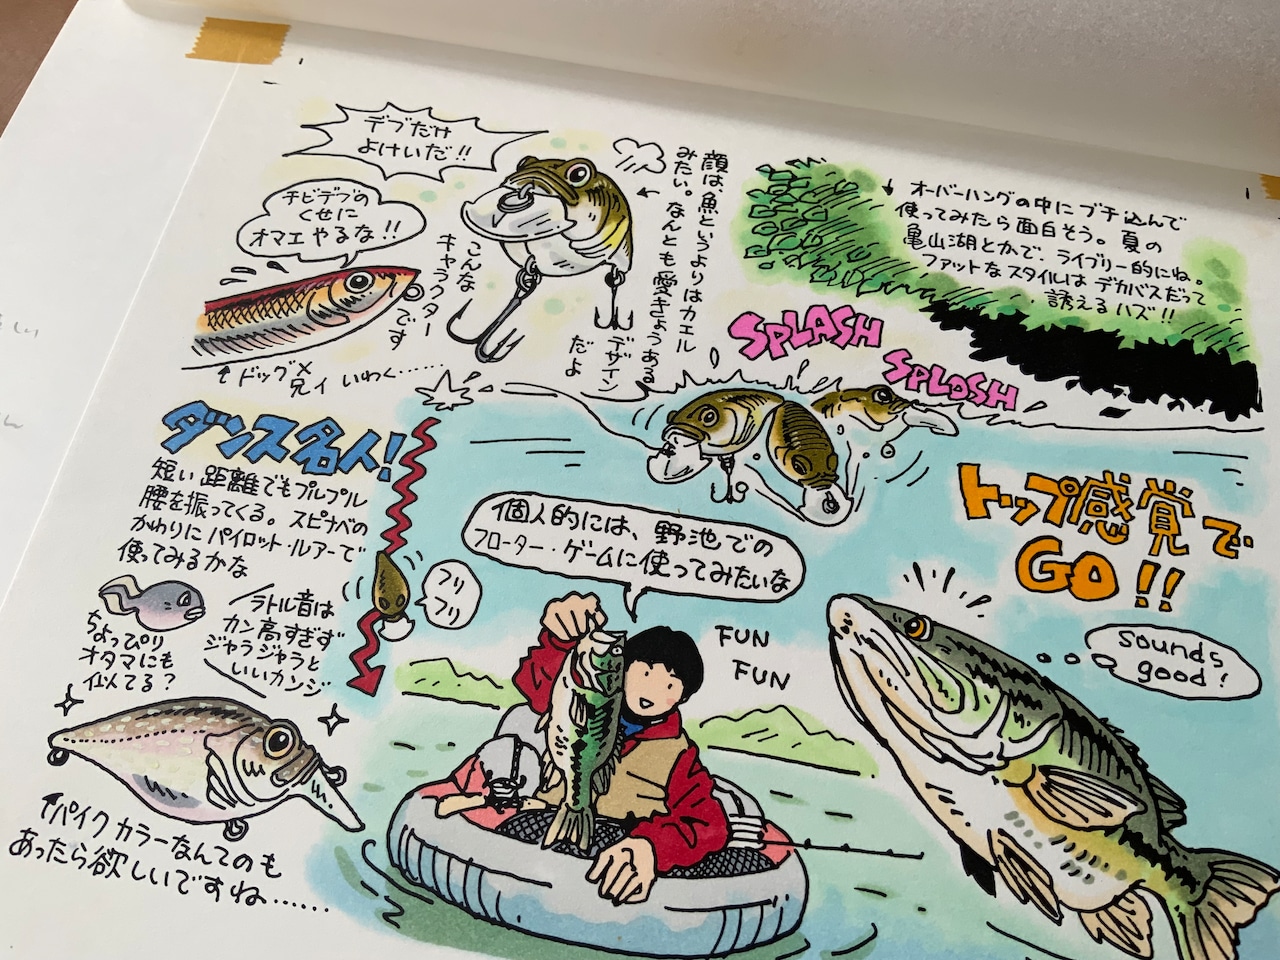 デブだけ
よけいだ!!
チビデブの
くせに
オマエやるな!!
顔は、魚というよりはカエル
みたい。なんとも愛きょうある
デザイン
だよ
こんな
キャラクター
です
↑ドッグメ
兄ィ いわく……
オーバーハングの中にブチ込んで
使ってみたら面白そう。夏の
亀山湖とかで、ライブリー的にね。
ファットなスタイルは デカバスだって
誘えるハズ!!
SPLASH
SPLOSH
ダンス名人!
短い距離でもプルプル
腰を振ってくる。スピナベの
かわりにパイロット・ルアーで
使ってみるかな
フリ
フリ
ちょっぴり
オタマにも
似てる?
ラトル音は
カン高すぎず
ジャラジャラと
いいカンジ
↑パイクカラーなんてのも
あったら欲しいですね……
個人的には、野池での
フローター・ゲームに使ってみたいな
FUN
FUN
トップ感覚で
GO!!
sounds
good!